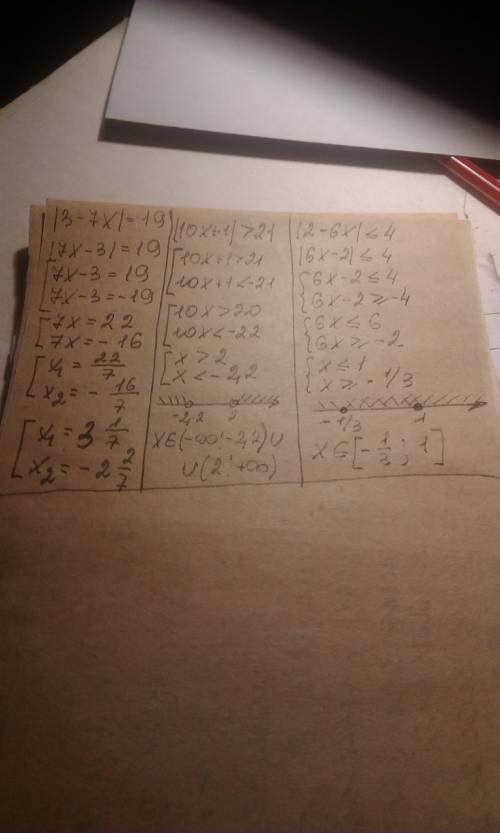 |3-7x|=19
|7x-3|=19
[7x-3=19
[7x-3=-19
[7x=22
[7x=-16
[x₁=22/7
[x₂=-16/7
[x₁=3 1/7
[x₂=-2 2/7
|10x+1|>21
[10x+1>21
[10x+1<-21
[10x>20
[10x<-22
[x>2
[x<-2,2
-2,2 2
x∈(-∞;-2,2)∪
∪(2;+∞)
|2-6x|≤4
|6x-2|≤4
{6x-2≤4
{6x-2≥-4
{6x≤6
{6x≥-2
{x≤1
{x≥-1/3
-1/3 1
x∈[-1/3;1]